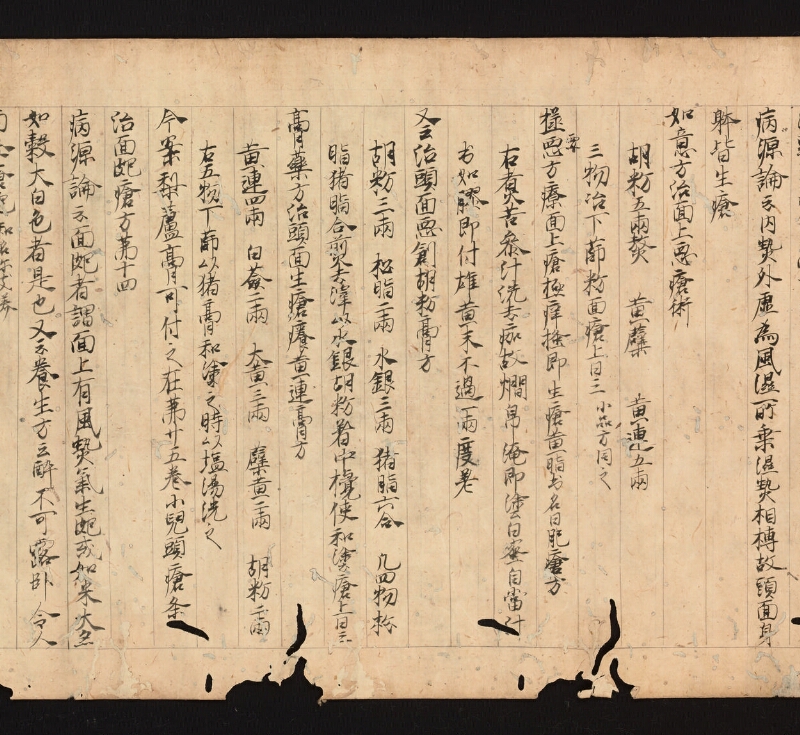 病源論云内熱外虚為風濕所乗濕熱相搏故頭面身
躰皆生瘡
如意方治面上悪瘡術
胡粉五兩熬 黄蘗 黄連五兩
三物治下篩粉面瘡上日三 小品方同之
極要方療面上瘡極痒搔即生瘡黄脂出名曰肥瘡方
右煮苦参汁洗去痂故爛帛淹即塗白蜜自當汁
出如膠即付雄黄末不過一兩度差
又云治頭面悪創胡粉膏方
胡粉三兩 松脂二兩 水銀三兩 猪脂六合 凡四物松
脂猪脂合煎去滓以水銀胡粉着中攪使和塗瘡上日三
膏藥方治頭面生瘡癢黄連膏方
黄連四兩 白蘞二兩 大黄三兩 蘗黄二兩 胡粉二兩
右五物下篩以猪膏和塗之時以塩湯洗之
今案梨蘆膏可付之在苐廿五卷小兒頭瘡条
治面皰瘡方苐十四
病源論云面皰者謂面上有風熱氣生皰或如米大亦
如穀大白色者是也又云養生方云酔不可露卧令人